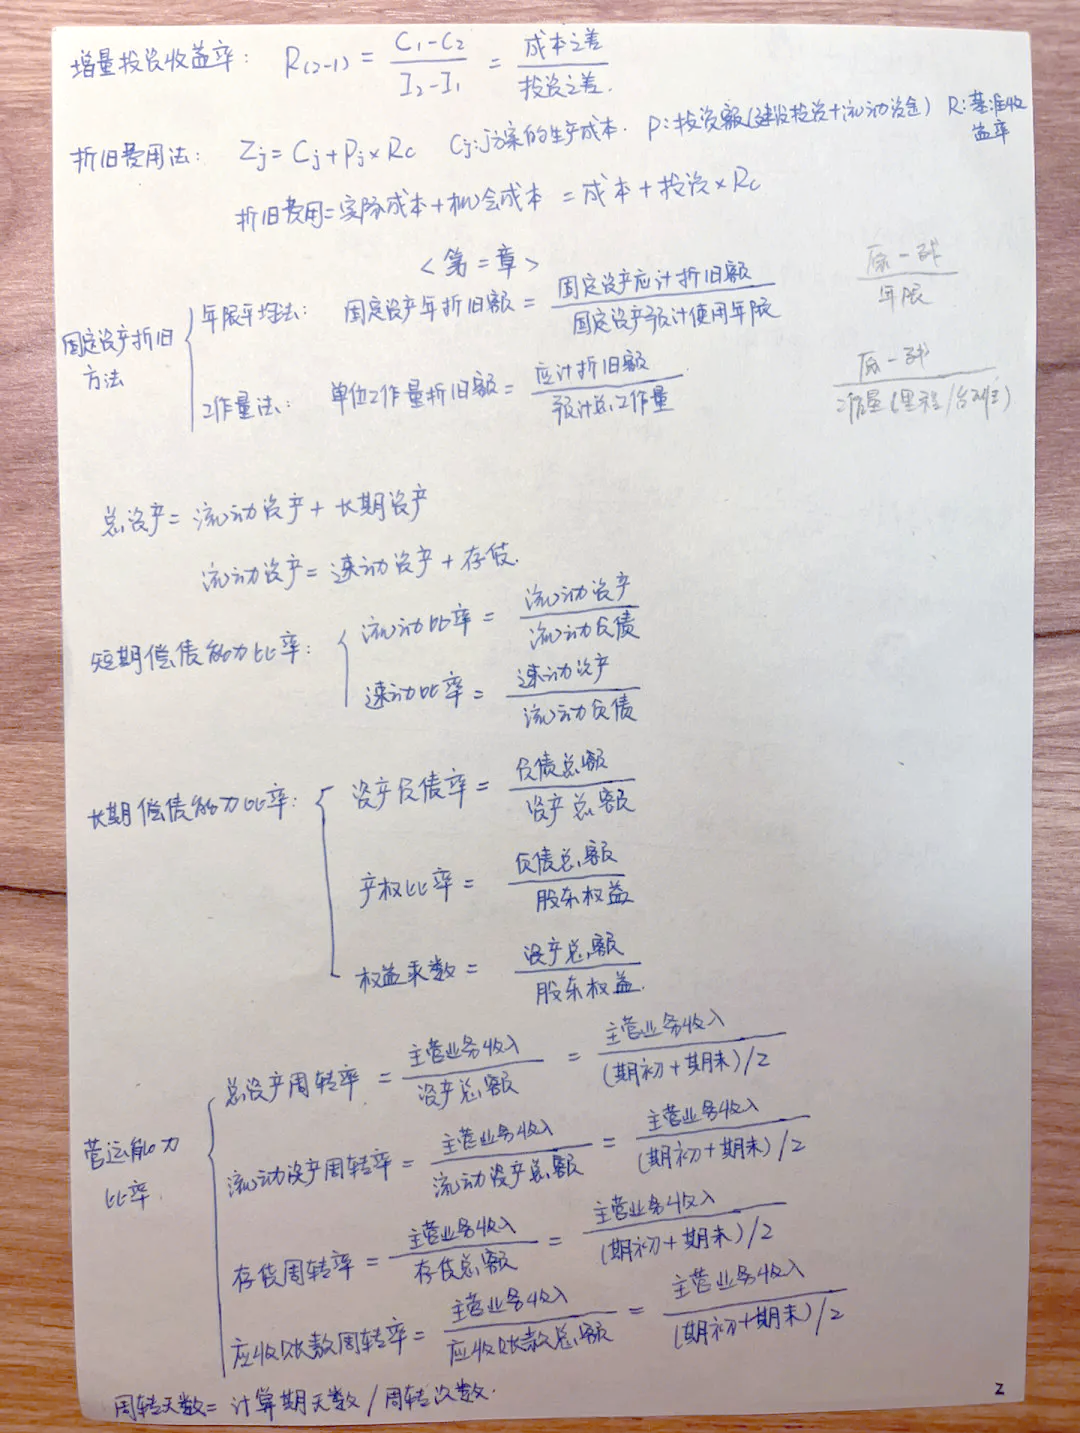 增量投资收益率: R(2-1) = C1-C2 / I2-I1 = 成本之差 / 投资之差.
折旧费用法: Zj = Cj + Pj × Rc Cj: j方案的生产成本. P: 投资额(建设投资+流动资金) R: 基准收益率
折旧费用=实际成本+机会成本 = 成本 + 投资 × Rc
<第二章>
固定资产折旧方法
年限平均法: 固定资产年折旧额 = 固定资产应计折旧额 / 固定资产预计使用年限
原-残 / 年限
工作量法: 单位工作量折旧额 = 应计折旧额 / 预计总工作量
原-残 / 工作量(里程/台班)
总资产 = 流动资产 + 长期资产
流动资产 = 速动资产 + 存货.
短期偿债能力比率:
流动比率 = 流动资产 / 流动负债
速动比率 = 速动资产 / 流动负债
长期偿债能力比率:
资产负债率 = 负债总额 / 资产总额
产权比率 = 负债总额 / 股东权益
权益乘数 = 资产总额 / 股东权益.
营运能力比率
总资产周转率 = 主营业务收入 / 资产总额 = 主营业务收入 / (期初+期末)/2
流动资产周转率 = 主营业务收入 / 流动资产总额 = 主营业务收入 / (期初+期末)/2
存货周转率 = 主营业务收入 / 存货总额 = 主营业务收入 / (期初+期末)/2
应收账款周转率 = 主营业务收入 / 应收账款总额 = 主营业务收入 / (期初+期末)/2
周转天数 = 计算期天数 / 周转次数.
2